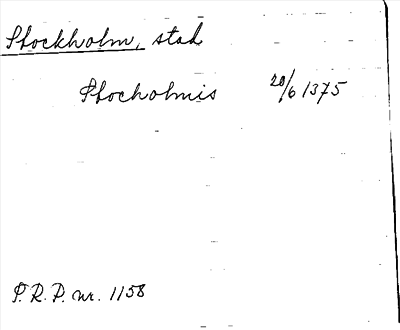 Stockholm, stad
Stocholmis 20/6 1375
P.R.P. nr. 1158